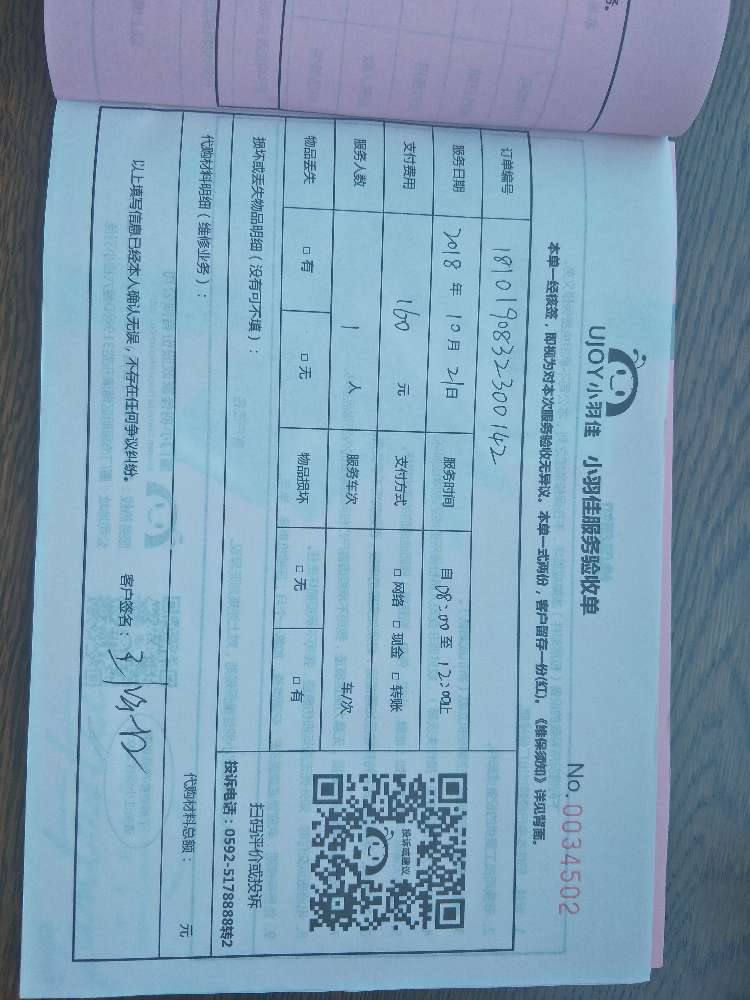 UJOY小羽佳 小羽佳服务验收单
No.0034502
本单一经核签，即视为对本次服务验收无异议。本单一式两份，客户留存一份(红)。《维保须知》详见背面。
订单编号 1810190832300142
服务日期 2018年10月21日 服务时间 自08:00至12:00止
支付费用 160元 支付方式 □网络 □现金 □转账
服务人数 1人 服务车次 车/次
物品丢失 □有 □无 物品损坏 □无 □有
投诉或建议
扫码评价或投诉
投诉电话：0592-5178888转2
损坏或丢失物品明细（没有可不填）：
代购材料明细（维修业务）：
代购材料总额： 元
以上填写信息已经本人确认无误，不存在任何争议纠纷。 客户签名：